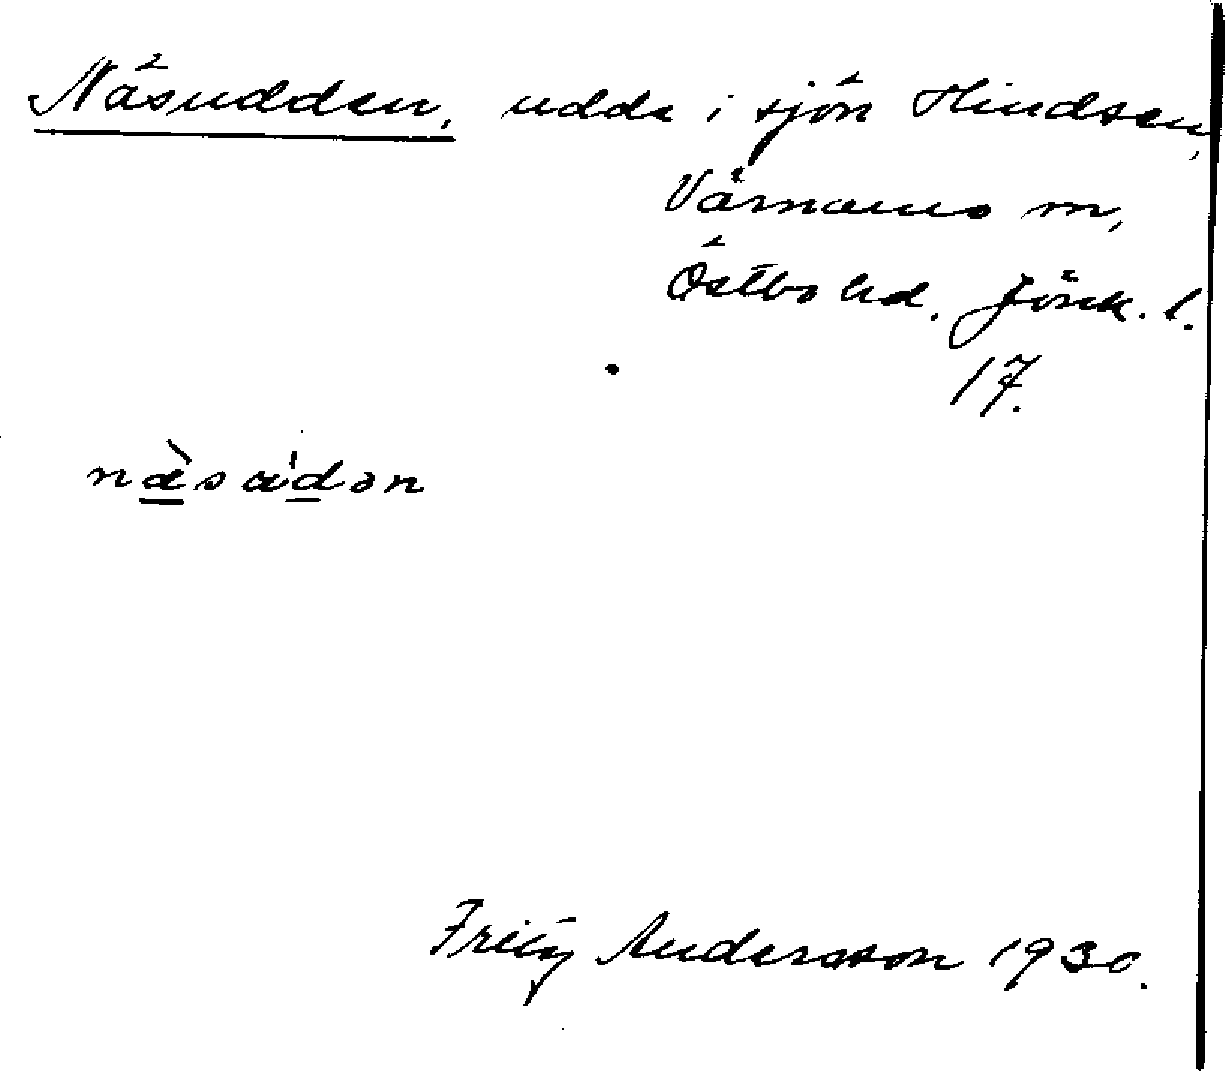 Näsudden, udde i sjön Hindsen,
Värnamo m,
Östbo hd. Jönk. l.
17.
nä̀sa̍dən
Fritz Andersson 1930.